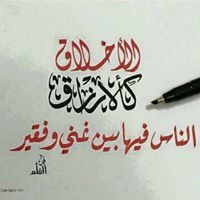 الأخلاق
كالأرزاق
الناس فيها بين غني وفقير
فن القلم